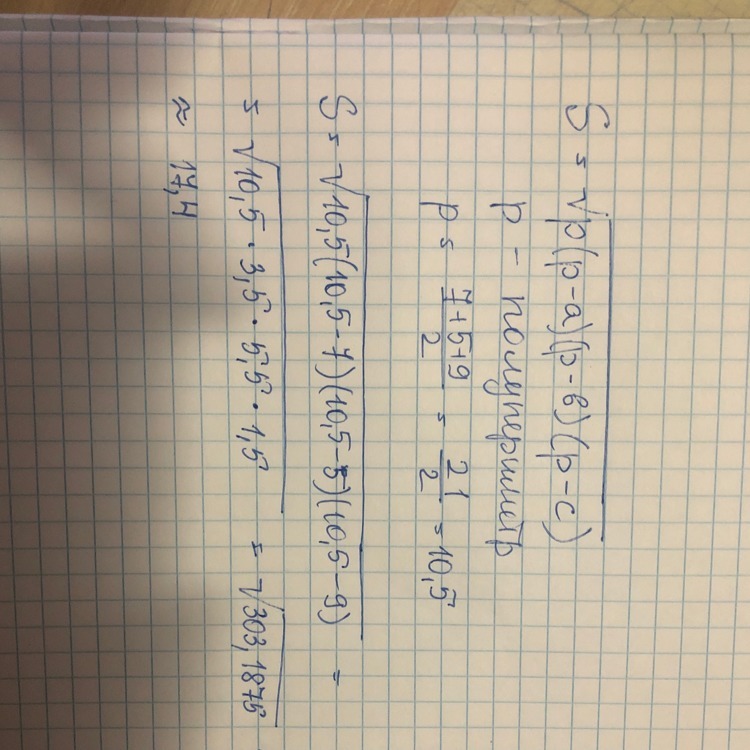 S = √p(p-a)(p-в)(p-c)
p - полупериметр
p = 7+5+9/2 = 21/2 = 10,5
S = √10,5(10,5-7)(10,5-5)(10,5-9) =
= √10,5·3,5·5,5·1,5 = √303,1875
≈ 17,4